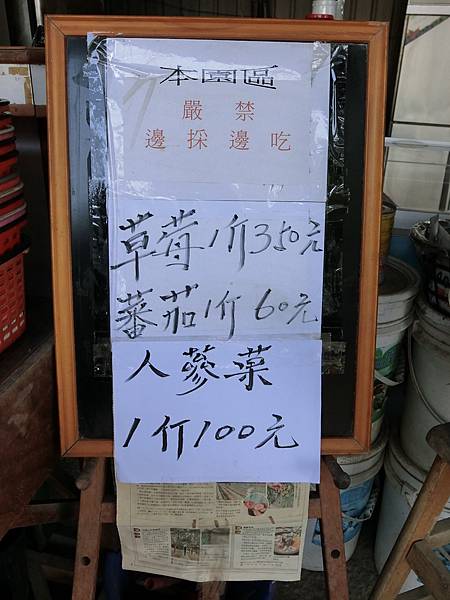 本園區
嚴禁
邊採邊吃
草莓1斤350元
蕃茄1斤60元
人蔘菓
1斤100元